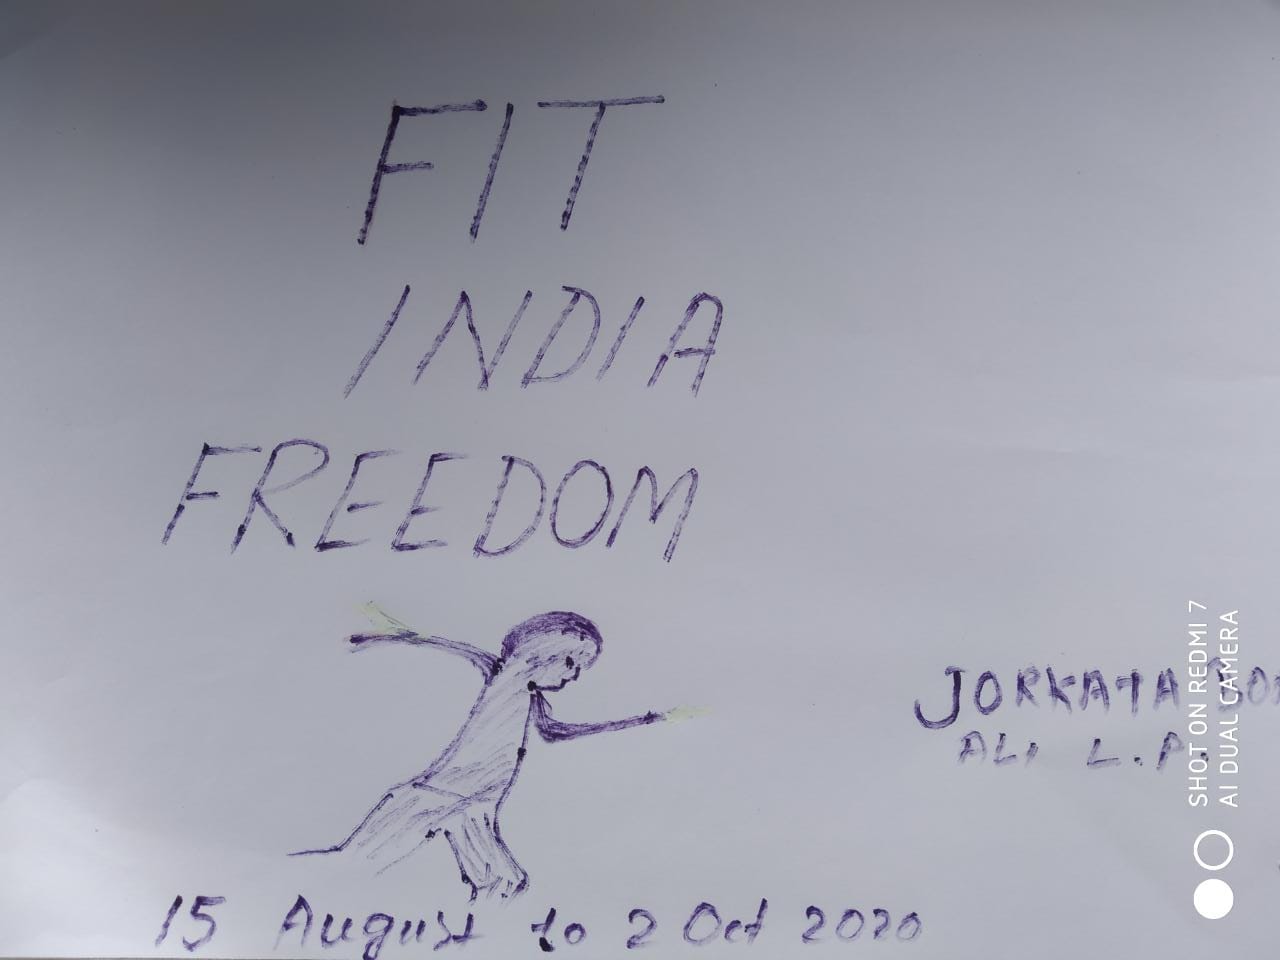 FIT
INDIA
FREEDOM
JORKATA
ALI L.P.
15 August to 2 Oct 2020
SHOT ON REDMI 7
AI DUAL CAMERA